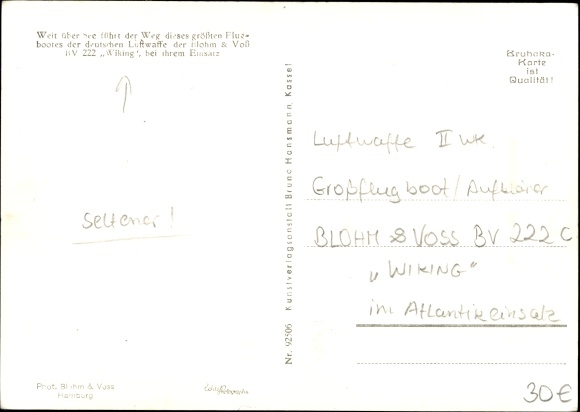 Weit über See führt der Weg dieses größten Flug-
bootes der deutschen Luftwaffe, der Blohm & Voß
BV 222 „Wiking", bei ihrem Einsatz
Bruhaka-
Karte
ist
Qualität!
seltener!
Nr. 92506 Kunstverlagsanstalt Bruno Hansmann, Kassel
Luftwaffe II WK.
Großflugboot/Aufklärer
BLOHM & VOSS BV 222 C
„WIKING"
im Atlantikeinsatz
Phot. Blohm & Voss
Hamburg
30€